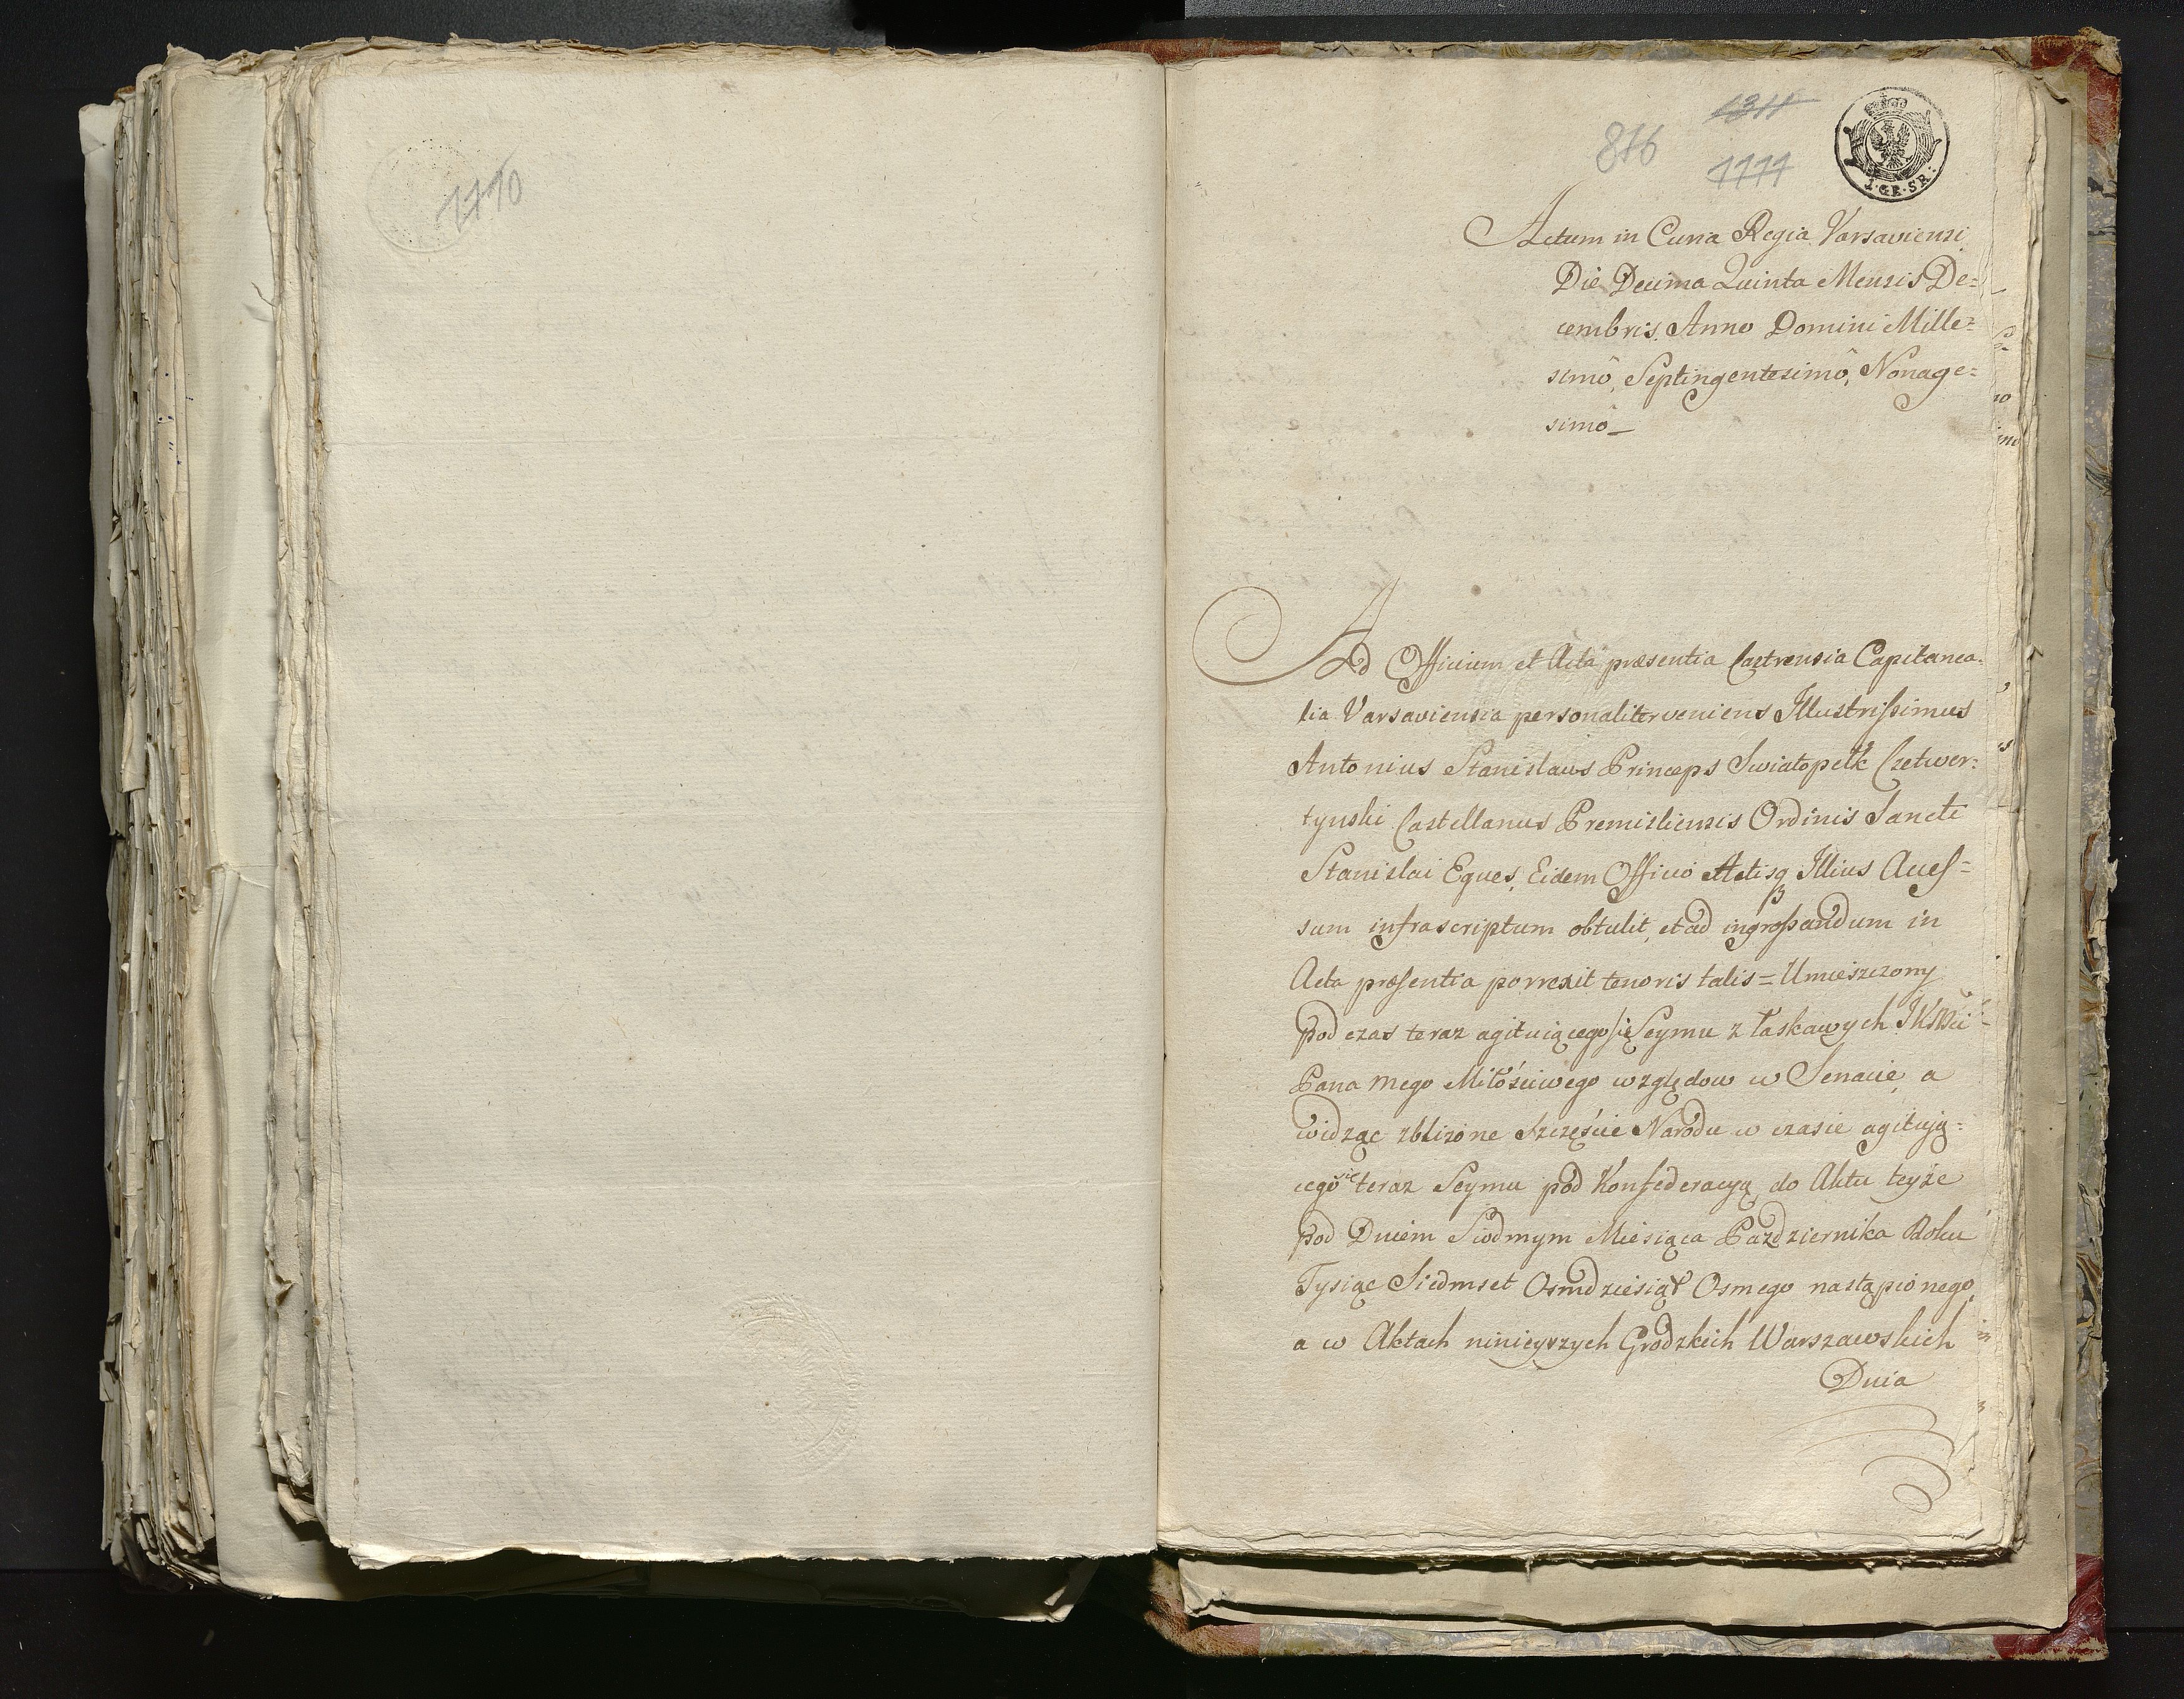 1110
1311
816
1111
1·GR·SR:
Actum in Curia Regia Varsaviensi
Die Decima Quinta Mensis De=
cembris Anno Domini Mille=
simô, Septingentesimô, Nonage=
simô
Ad Officium et Acta præsentia Castrensia Capitanea=
lia Varsaviensia personaliter veniens Illustrissimus
Antonius Stanislaus Princeps Swiatopełk Czetwer=
tynski Castellanus Premisliensis Ordinis Sancti
Stanislai Eques, Eidem Officio Actisq Illius Acces=
sum infrascriptum obtulit, et ad ingrossandum in
Acta præsentia porrexit tenoris talis = Umieszczony
pod czas teraz agituiącego się Seymu z łaskawych JKMci
Pana mego Miłościwego względow w Senacie, a
widząc zbliżone Szczęście Narodu w czasie agitują=
cego się teraz Seymu pod Konfederacyą do Aktu teyże
pod Dniem Siodmym Miesiąca Pazdziernika Roku
Tysiąc Siedmset Osmdziesiąt Osmego nastąpionego,
a w Aktach ninieyszych Grodzkich Warszawskich
Dnia